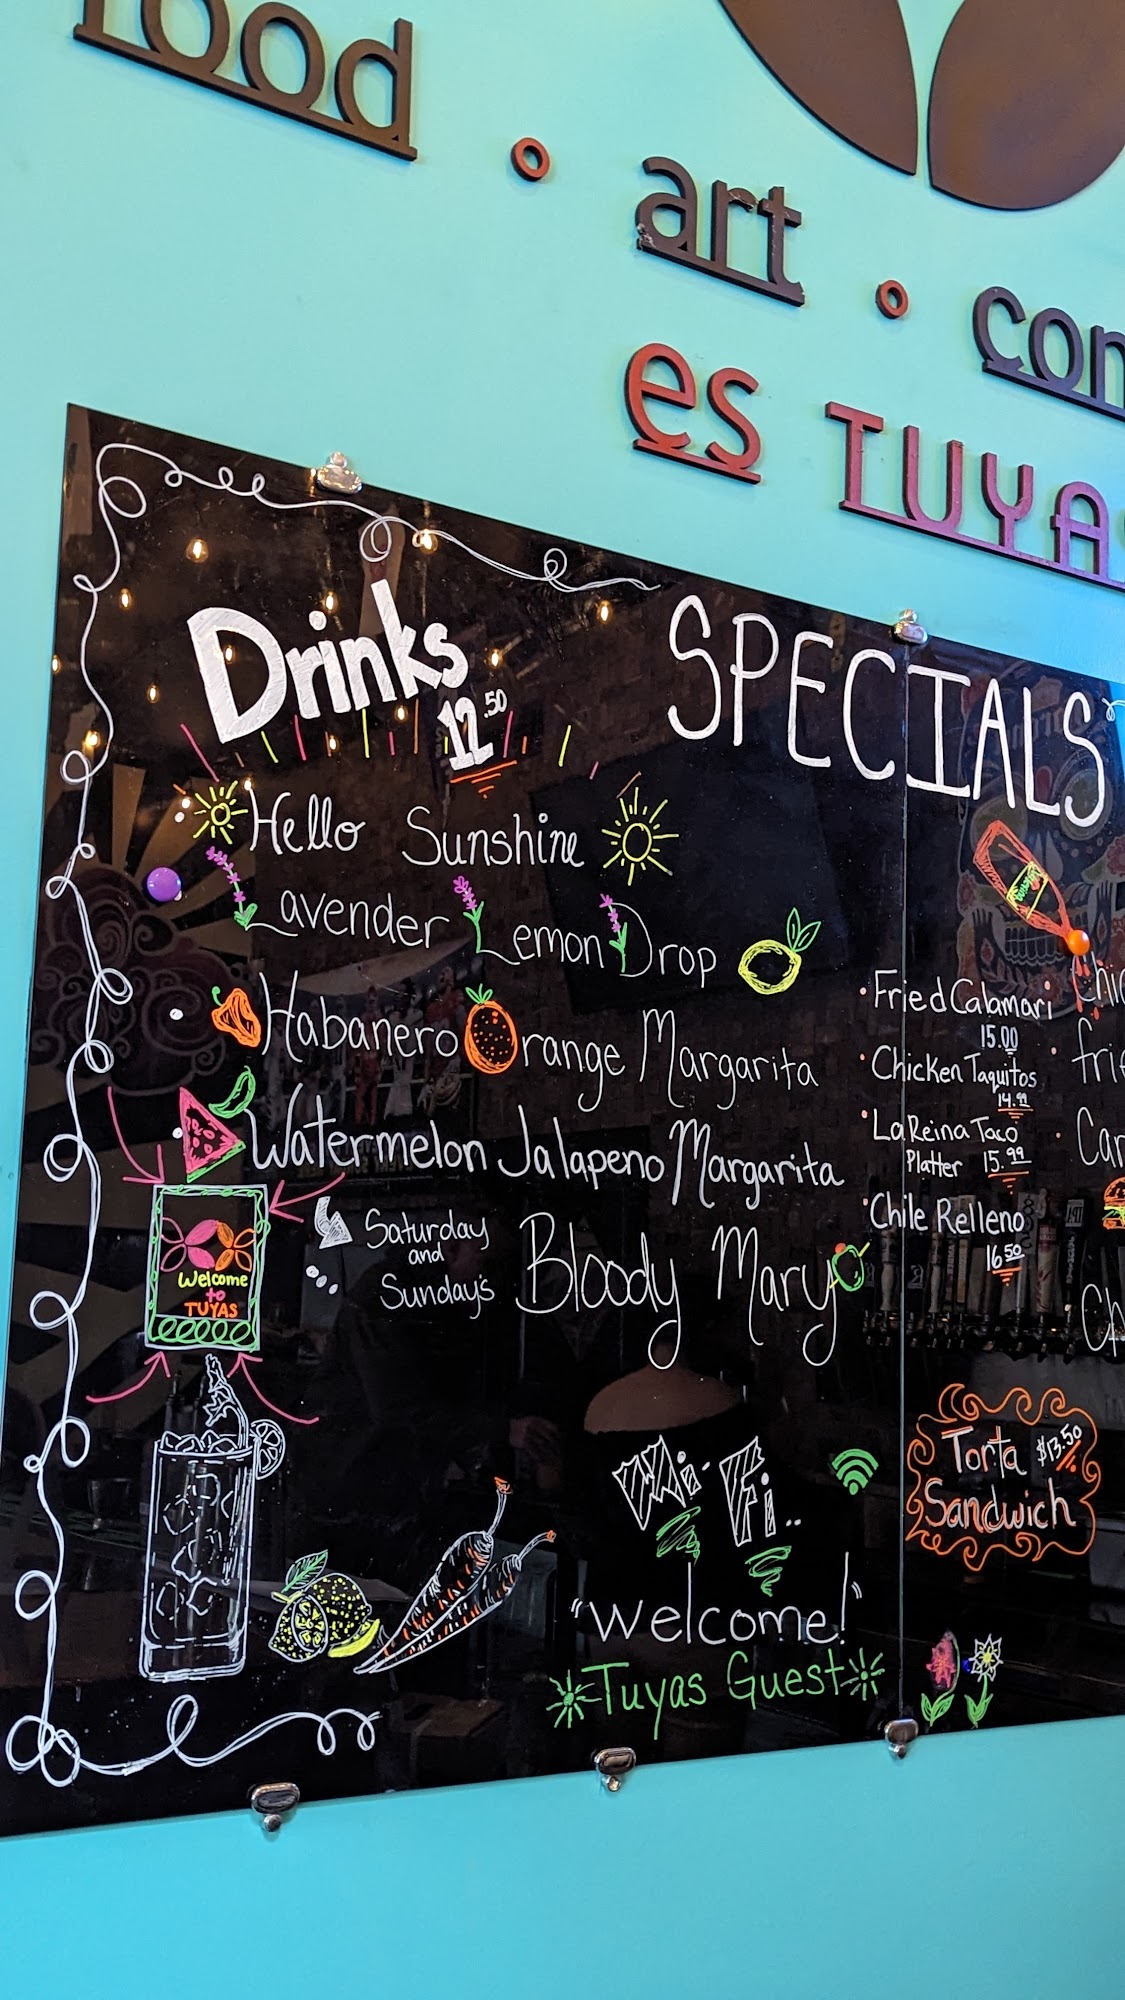 food • art • con
es TUYAS
Drinks
12.50
SPECIALS
Hello Sunshine
Lavender Lemon Drop
Habanero Orange Margarita
Watermelon Jalapeno Margarita
Saturday
and
Sunday's
Bloody Mary
Welcome
to
TUYAS
• Fried Calamari
15.00
• Chicken Taquitos
14.99
• La Reina Taco
Platter 15.99
• Chile Relleno
16.50
Chi
fri
Car
Ch
Torta $13.50
Sandwich
Wi-Fi..
"welcome!"
Tuyas Guest